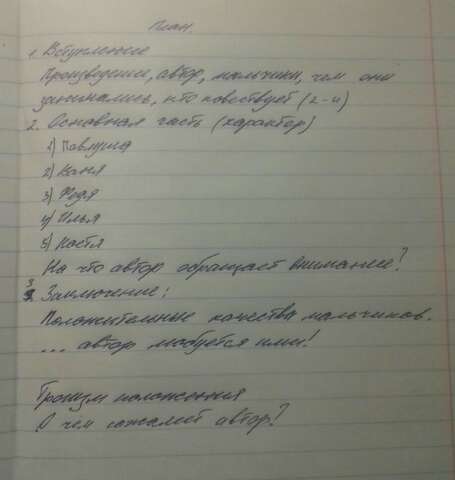 План
1. Вступление
Произведение, автор, мальчики, чем они
занимались, кто повествует (2-4)
2. Основная часть (характер)
1) Павлуша
2) Ваня
3) Федя
4) Илья
5) Костя
На что автор обращает внимание?
3. Заключение:
Положительные качества мальчиков.
... автор любуется ими!
Трагизм положения
О чем сожалеет автор?